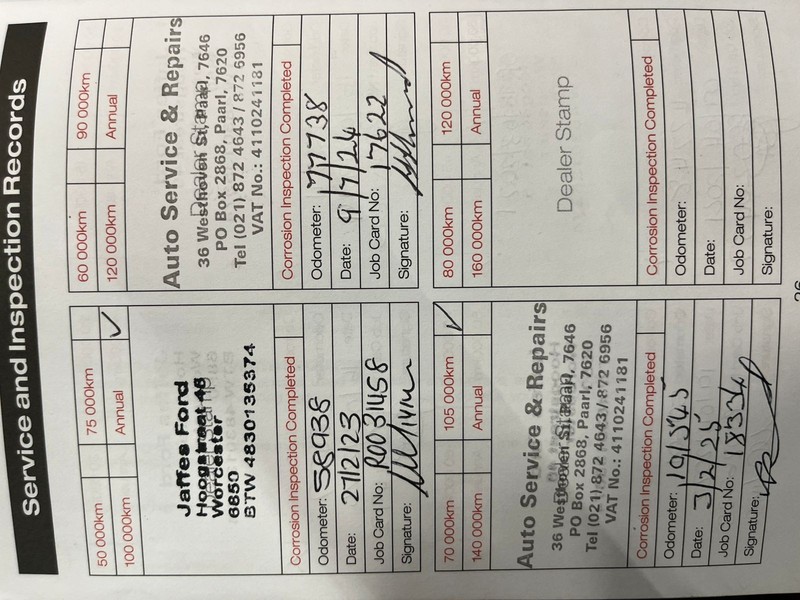 Service and Inspection Records
50 000km 75 000km
100 000km Annual ✓
Jaffes Ford
Hoogstraat 45
Worcester
6850
BTW 4830135374
Corrosion Inspection Completed
Odometer: 58938
Date: 27/2/23
Job Card No: R0031458
Signature:
60 000km 90 000km
120 000km Annual
Auto Service & Repairs
36 Westhoven St, Paarl, 7646
PO Box 2868, Paarl, 7620
Tel (021) 872 4643 / 872 6956
VAT No.: 4110241181
Corrosion Inspection Completed
Odometer: 77738
Date: 9/7/24
Job Card No: 17622
Signature:
70 000km 105 000km ✓
140 000km Annual
Auto Service & Repairs
36 Westhoven St, Paarl, 7646
PO Box 2868, Paarl, 7620
Tel (021) 872 4643 / 872 6956
VAT No.: 4110241181
Corrosion Inspection Completed
Odometer:
Date: 3/2/25
Job Card No: 18334
Signature:
80 000km 120 000km
160 000km Annual
Dealer Stamp
Corrosion Inspection Completed
Odometer:
Date:
Job Card No:
Signature: